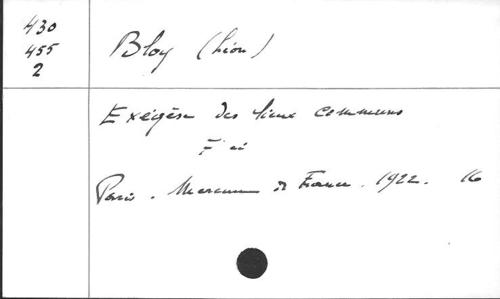 430
455
2
Bloy (Léon)
Exégèse des lieux communs
F
Paris. Mercure de France. 1922. 16